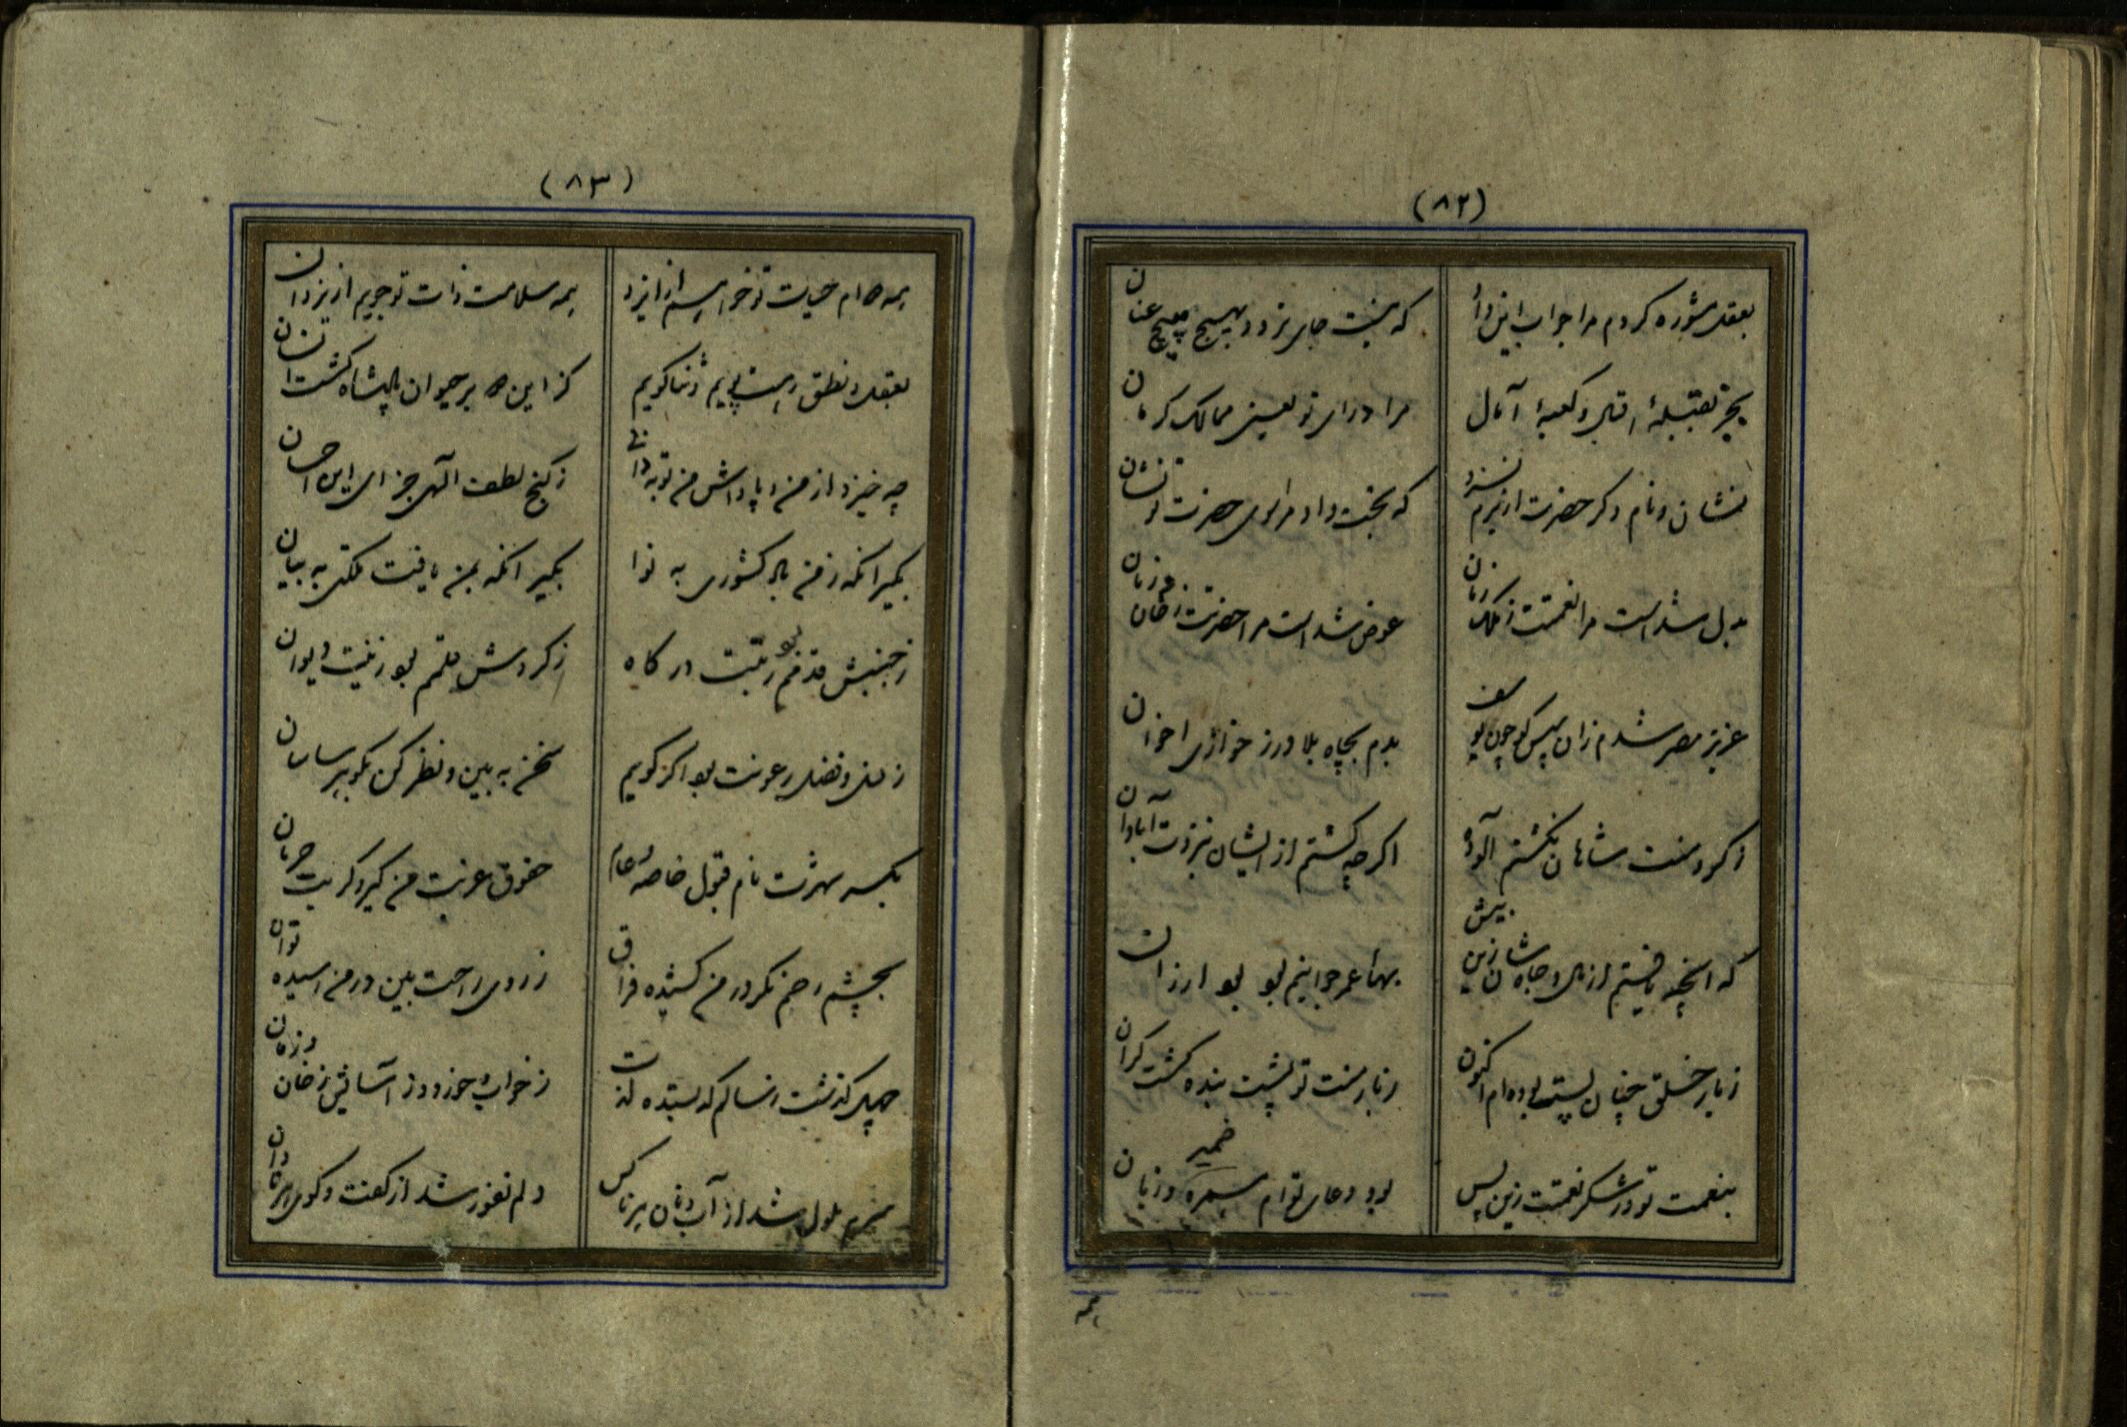 (۸۲)
بعقل مشوره کردم مرا جواب این داد
که نیست جای تردد بهیچ پیچ عنان
بجز بقبلهٔ اقبال و کعبهٔ آمال
مرا در ای تو یعنی ممالک کرمان
نشان و نام دگر حضرت از نبرم نسزد
که بخت داد مرا سوی حضرت تو نشان
بدل شد است مرا نعمتت ز ملک زمان
عوض شد است مرا حضرتت ز خان و زمان
عزیز مصر شدم زان سپس که چون یوسف
بدم بچاه بلا در ز خواری اخوان
ز گرد منت شاهان نگشتم آلوده
اگر چه گشتم از ایشان بنزدت آبادان
که آنچه یافتم از مال و جاه شان زین بیش
بهاء عمر جوانیم بو بو ارزان
ز بار خلق چنان پست بوده ام اکنون
ز بار منت تو پشت بنده گشت گران
بنعمت تو در شکر نعمتت زین پس
بود دعای تو ام سمرهٔ ضمیر و زبان
همه
(۸۳)
همه دوام حیات تو خواهم از ایزد
همه سلامت ذات تو جویم از یزدان
بعقل و نطق رهت پویم و ثنا گویم
کز این دو بر حیوان پادشاه گشت انسان
چه خیزد از من و پاداش من تو به دانی
ز گنج لطف الهی جزای این احسان
بگیر آنکه ز من یاد کشوری به نوا
بگیر آنکه بمن یافت ملکتی به بیان
ز جنبش قدمم بو رتبت درگاه
ز گردش قلمم بو زینت دیوان
ز مال و فضل رعونت بود اگر گویم
سخن به بین و نظر کن بگو بپرسامان
بکسب شهرت نام قبول خاصه و عام
حقوق غربت من گیر و کربت حرمان
بچشم رحم نگر در من کشیده فراق
ز روی راحت بین در من رسیده توان
چهل گذشت ز سالم که بستده لذت
ز خواب و خور و ز آسایش ز خان و زمان
تنم ملول شد از آب و نان هر ناکس
دلم نفور شد از گفت و گوی هر نادان